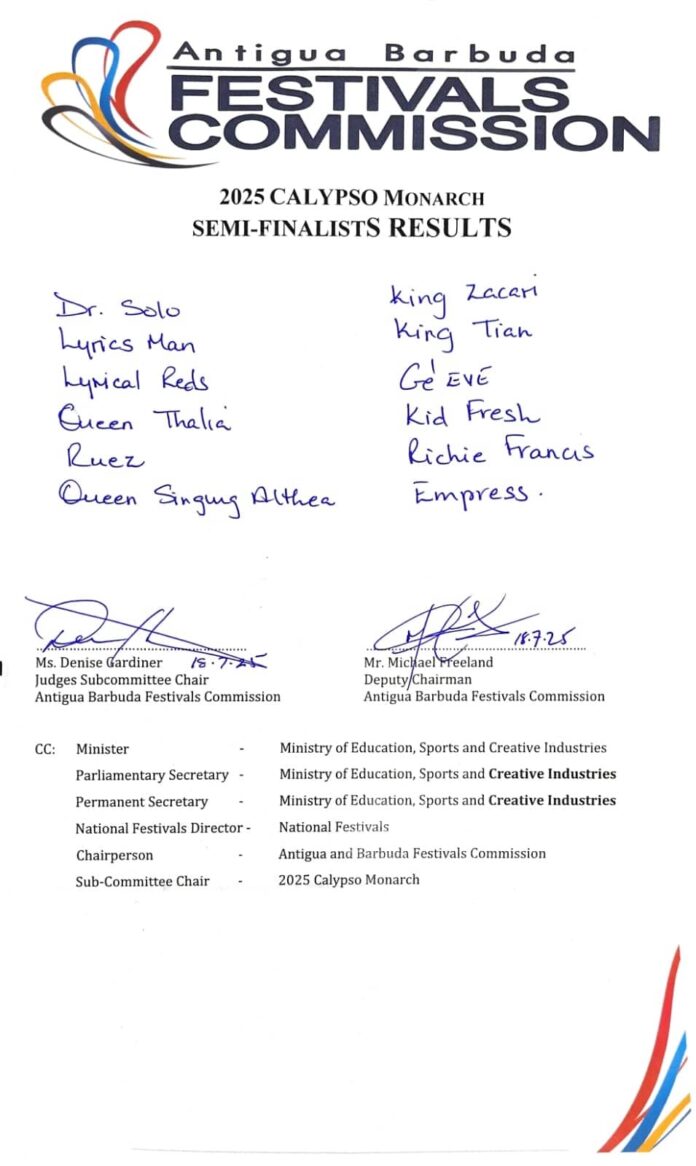 Antigua Barbuda
FESTIVALS
COMMISSION
2025 CALYPSO MONARCH
SEMI-FINALISTS RESULTS
Dr. Solo
Lyrics Man
Lyrical Reds
Queen Thalia
Ruez
Queen Singing Althea
King Zacari
King Tian
Gé EVE
Kid Fresh
Richie Francis
Empress.
18.7.25
Ms. Denise Gardiner
Judges Subcommittee Chair
Antigua Barbuda Festivals Commission
18.7.25
Mr. Michael Freeland
Deputy Chairman
Antigua Barbuda Festivals Commission
CC: Minister - Ministry of Education, Sports and Creative Industries
Parliamentary Secretary - Ministry of Education, Sports and Creative Industries
Permanent Secretary - Ministry of Education, Sports and Creative Industries
National Festivals Director - National Festivals
Chairperson - Antigua and Barbuda Festivals Commission
Sub-Committee Chair - 2025 Calypso Monarch